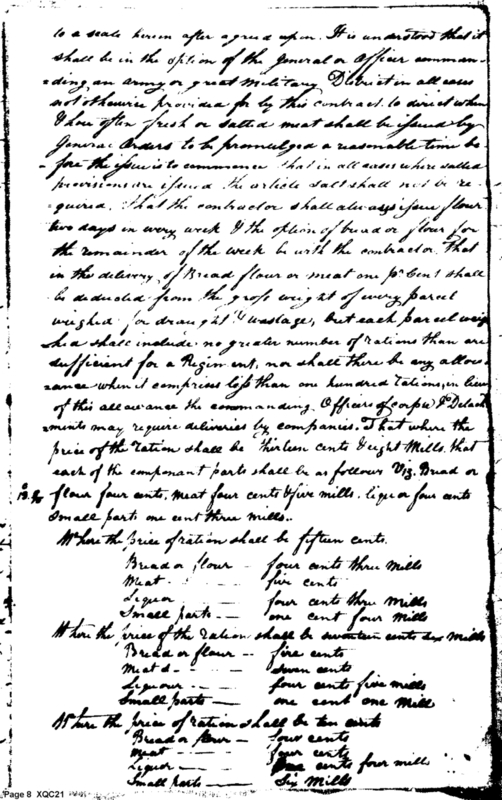 to a scale herein after agreed upon. It is understood that it
shall be in the option of the General or Officer comman-
-ding an army or great Military District in all cases
not otherwise provided for by this contract. to direct when
& how often fresh or salted meat shall be issued by
General Orders to be promulged a reasonable time be
-fore the issue is to commence that in all cases where salted
provisions are issued the article salt shall not be re-
quired. That the contractor shall always issue flour
two days in every week & the option of bread or flour for
the remainder of the week be with the contractor. That
in the delivery of Bread flour or meat one pr Cent shall
be deducted from the gross weight of every parcel
weighed for draught & wastage, but each parcel weig
hed shall include no greater number of rations than are
sufficient for a Regiment, nor shall there be any allow-
-ance when it comprises less than one hundred rations, in lieu
of this allowance the commanding Officers of corps & Detach
ments may require deliveries by companies. That where the
price of the ration shall be thirteen cents & eight Mills. that
each of the componant parts shall be as follows Viz. Bread or
flour four cents. meat four cents & five mills. liquor four cents
small parts one cent three mills..
Where the price of ration shall be fifteen cents.
Bread or flour - four cents three mills
Meat - five cents
Liquor - four cents three Mills
Small parts - one cent four Mills
Where the price of the ration shall be seventeen cents six Mills
Bread or flour - five cents
Meat - seven cents
Liquour - four cents five mills
Small parts - one cent one Mill
Where the price of ration shall be ten cents
Bread or flour - four cents
Meat - four cents
Liquor - one cents four mill
Small parts - Six Mills
Page 8 XQC21